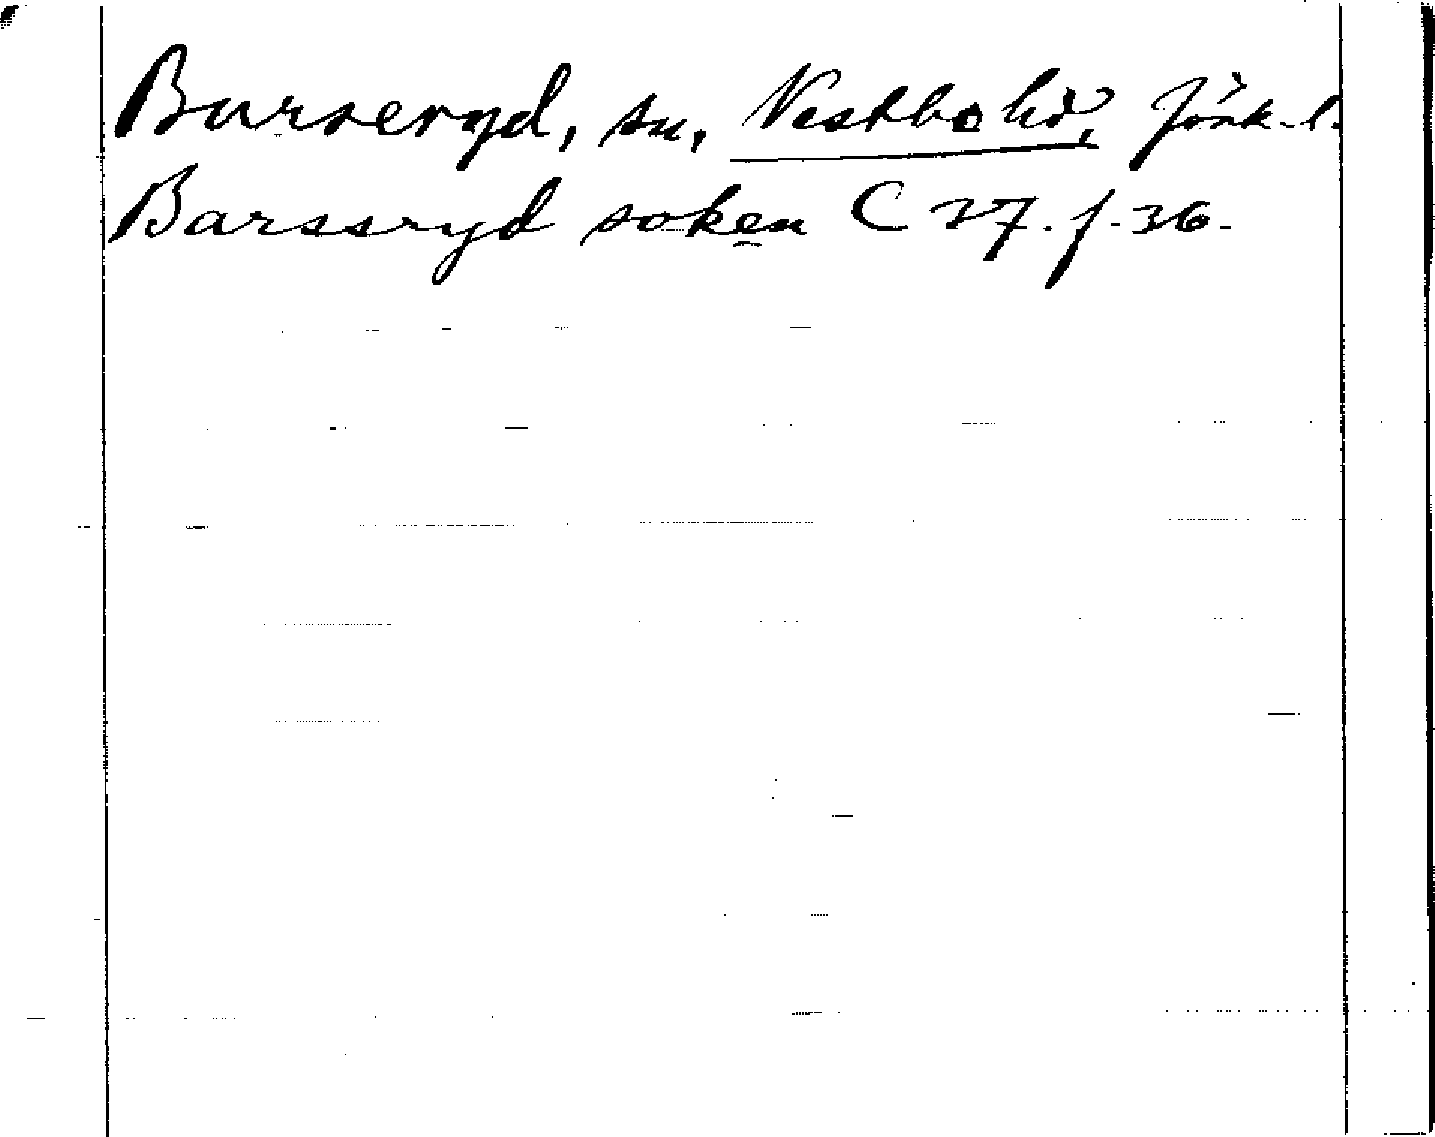 Burseryd, sn, Vestbo hd, Jönk. l.
Barssryd soken C 27. f. 36.